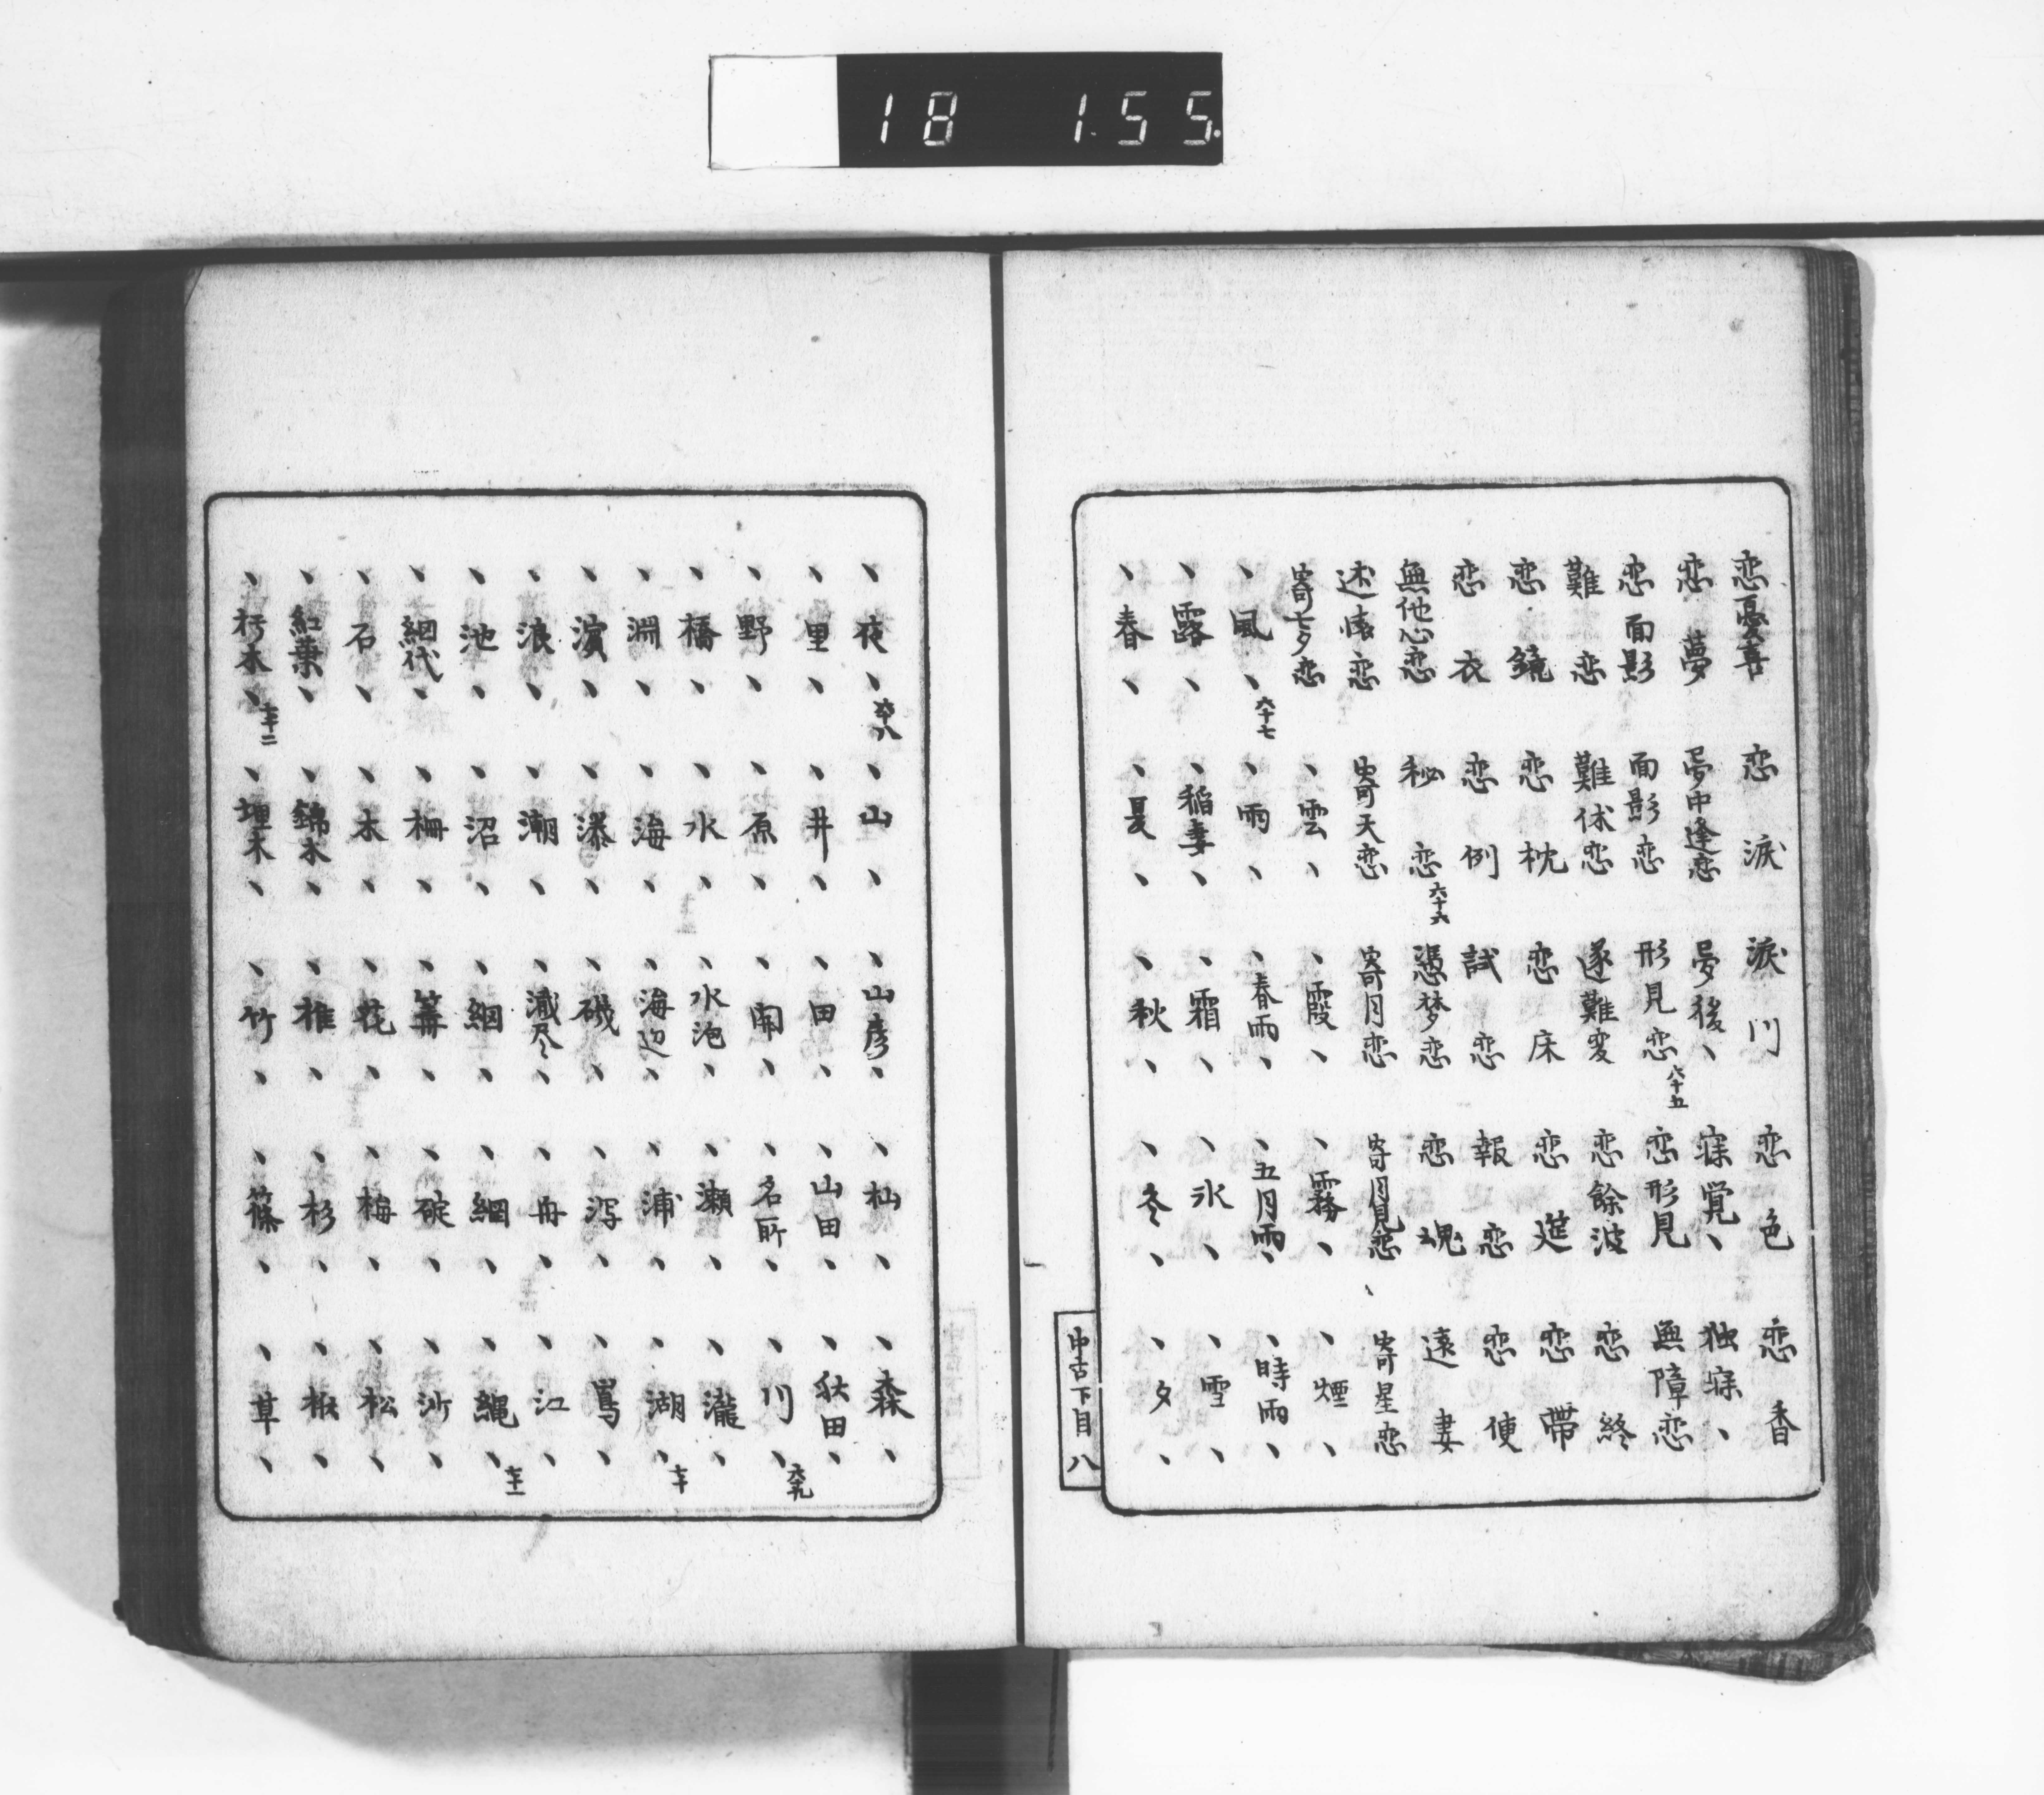 18 155.
恋憂喜 恋涙 涙川 恋色 恋香
恋夢 夢中逢恋 夢後、 寐覚、 独寐、
恋面影 面影恋 形見恋 六十五 恋形見 無障恋
難恋 難休恋 遂難変 恋餘波 恋終
恋鏡 恋枕 恋床 恋筵 恋帯
恋衣 恋例 試恋 報恋 恋便
無他心恋 秘恋 六十六 憑梦恋 恋魂 遠妻
述懐恋 寄天恋 寄月恋 寄月見恋 寄星恋
寄七夕恋 、雲、 、霞、 、霧、 、煙、
、風、 六十七 、雨、 、春雨、 、五月雨、 、時雨、
、露、 、稲妻、 、霜、 、氷、 、雪、
、春、 、夏、 、秋、 、冬、 、夕、
中古下目 八
、夜、 六十八 、山、 、山彦、 、杣、 、森、
、里、 、井、 、田、 、山田、 、秋田、
、野、 、原、 、関、 、名所、 、川、 六十九
、橋、 、水、 、水泡、 、瀬、 、瀧、
、淵、 、海、 、海辺、 、浦、 、湖、 七十
、濱、 、湊、 、磯、 、潟、 、嶌、
、浪、 、潮、 、澪尽、 、舟、 、江、
、池、 、沼、 、網、 、綱、 、縄、 七十一
、網代、 、柵、 、篝、 、碇、 、沙、
、石、 、木、 、花、 、梅、 、松、
、紅葉、 、錦木、 、椎、 、杉、 、椒、
、朽木、 七十二 、埋木、 、竹、 、篠、 、草、